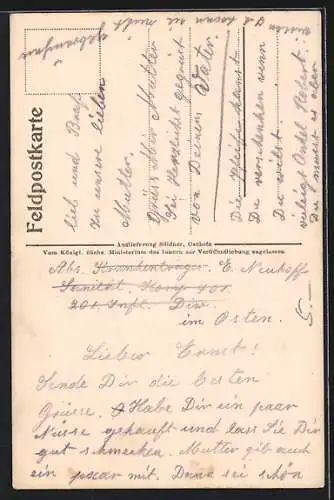 Feldpostkarte
Auslieferung Söldner, Oschatz
Vom Königl. Sächs. Ministerium des Innern zur Veröffentlichung zugelassen
Abs. Krankenträger E. Neuhoff
Sanität. Komp. 401
201. Inft. Div.
im Osten.
Lieber Ernst!
Sende Dir die besten
Grüsse. Habe Dir ein paar
Nüsse gekauft und lass Sie Dir
gut schmecken. Mutter gib auch
ein paar mit. Dann sei schön
lieb und brav
zu unsere lieben
Mutter.
Grüss Mutter
sei herzlichst gegrüßt
von Deinem Vater.
Die Pfeife kanst
Du verschenken wenn
Du willst.
vieleigt Onkel Robert.
Du musst es aber
wissen
kann sie nicht
gebrauchen
5.–